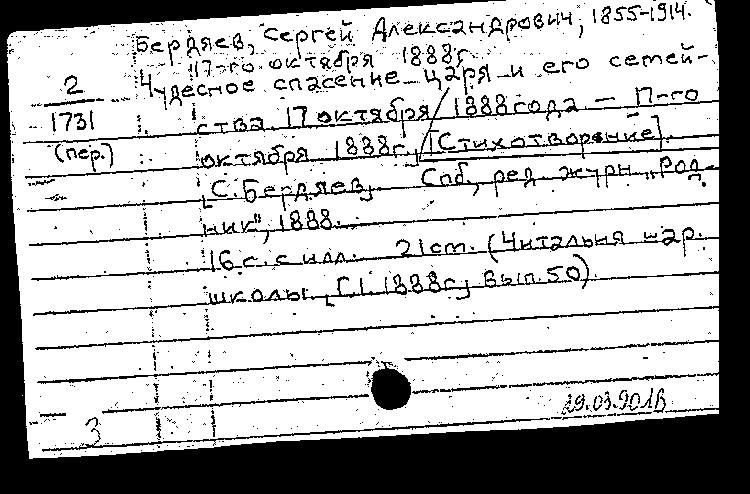 Бердяев, Сергей Александрович, 1855-1914.
17-го октября 1888г.
2 Чудесное спасение царя и его семей-
1731 ства 17 октября 1888 года — 17-го
(пер.) октября 1888г. [Стихотворение].
[С. Бердяев]. Спб, ред. журн. „Род-
ник", 1888.
16 с. с илл. 21 см. (Читальня нар.
школы, [Г.] 1888г, Вып. 50).
3